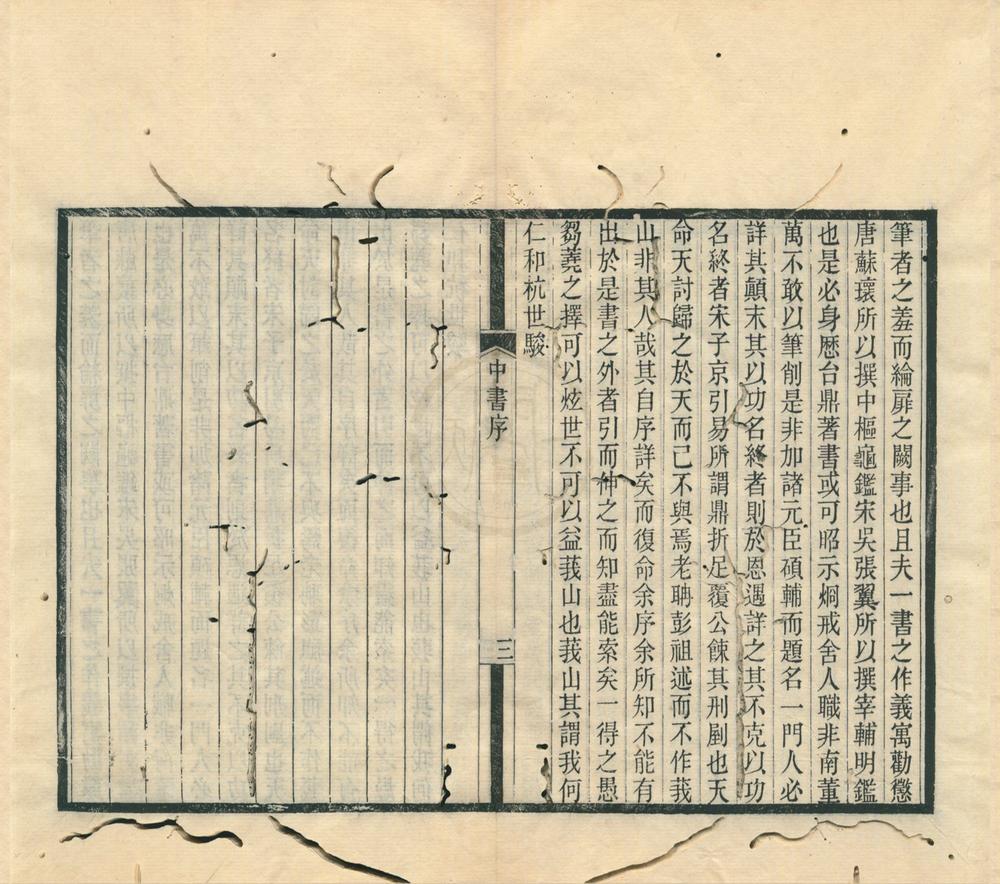 筆者之羞而綸扉之闕事也且夫一書之作義寓勸懲
唐蘇瓌所以撰中樞龜鑑宋吳張翼所以撰宰輔明鑑
也是必身歷台鼎著書或可昭示烱戒舍人職非南董
萬不敢以筆削是非加諸元臣碩輔而題名一門人必
詳其顛末其以功名終者則於恩遇詳之其不克以功
名終者宋子京引易所謂鼎折足覆公餗其刑剭也天
命天討歸之於天而己不與焉老聃彭祖述而不作莪
山非其人哉其自序詳矣而復命余序余所知不能有
出於是書之外者引而伸之而知盡能索矣一得之愚
芻蕘之擇可以炫世不可以益莪山也莪山其謂我何
仁和杭世駿
中書序
三